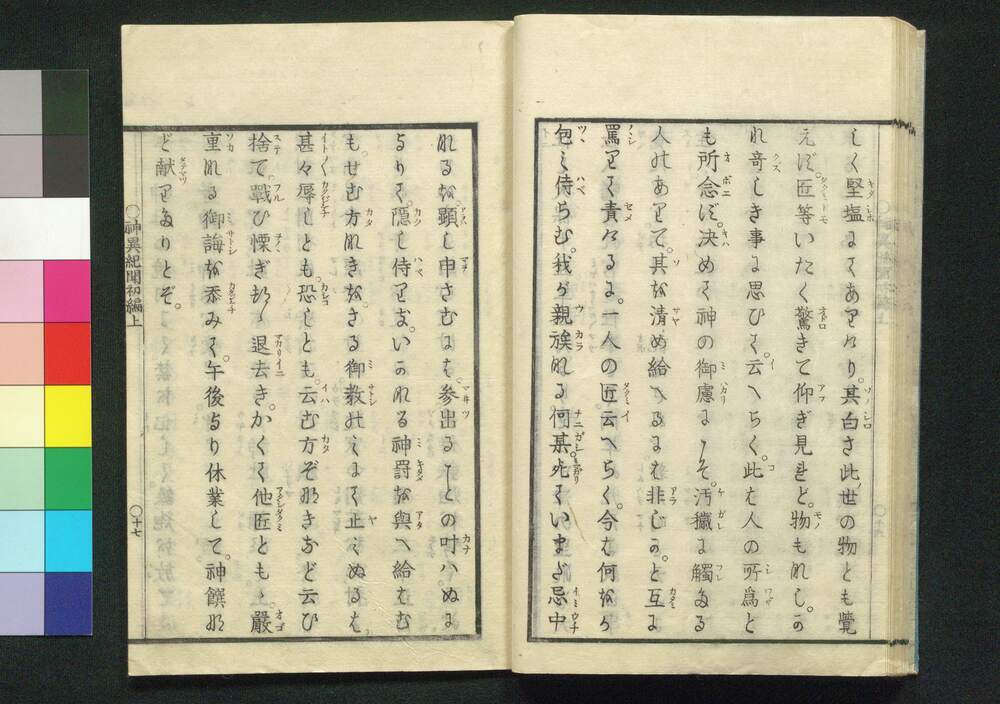 しく堅塩にてありけり。其白さ此世の物とも覺
えず。匠等いたく驚きて仰ぎ見れど。物もなし。か
れ奇しき事に思ひて。云へらく。此は人の所爲と
も所念ず。决めて神の御慮にこそ。汚穢に觸たる
人のありて。其を清め給へるには非じか。と互に
罵りて責ける に。一人の匠云へらく。今は何をか
包み侍らむ。我が親族なる何某死ていまだ忌中
なるを。顕し申さむには。参出ることの叶ハぬに
よりて。隠し侍り。いかなる神罸を與へ給はむ
もせむ方なきを。さる御教のみにて止みぬるは
甚々辱しとも。恐しとも。云む方ぞなきなど云ひ
捨て。戰ひ慄ぎつゝ退去き。かくて他匠ども。嚴
重なる御誨を忝みて。午後より休業して。神饌な
ど献りたりとぞ。
〇神異紀聞初編上
〇十七